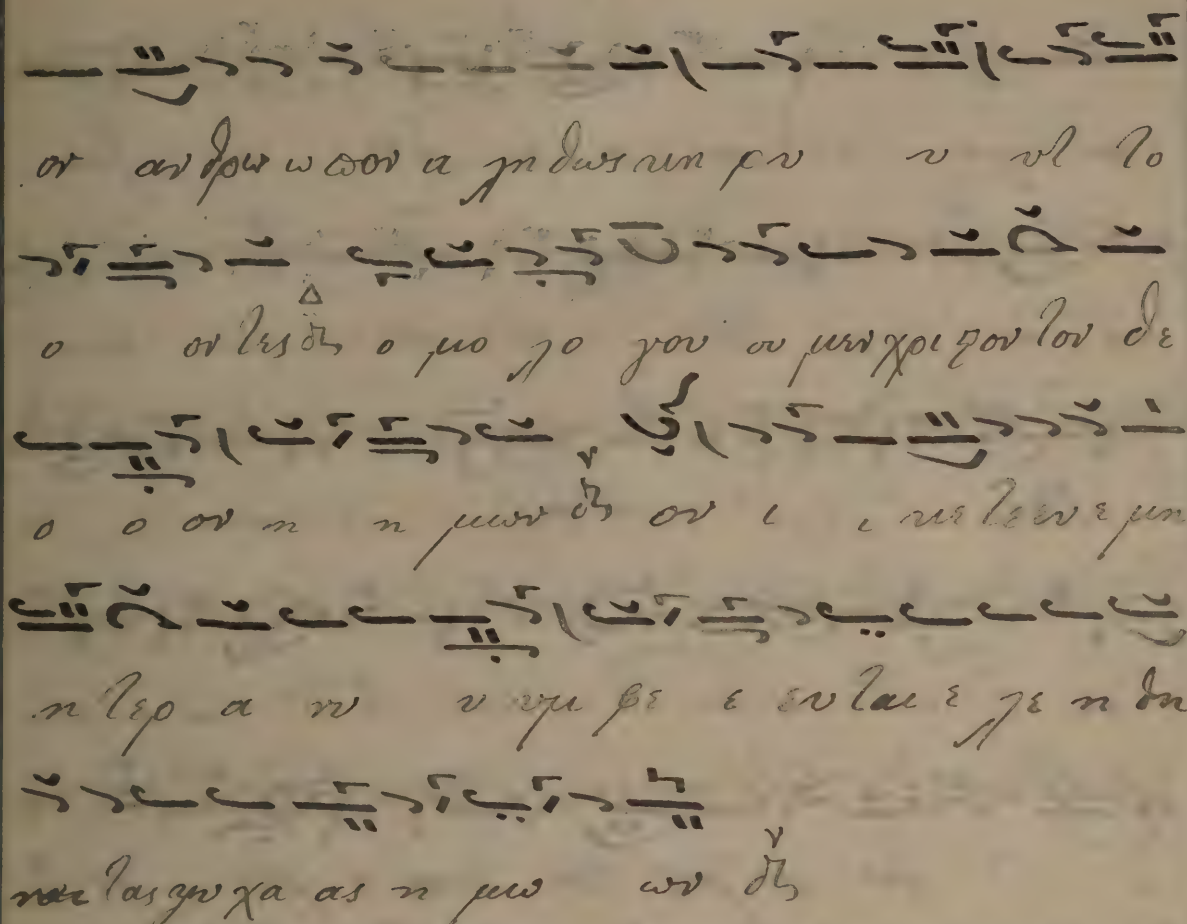 ον αν θρω ω πον α λη θως κη ρυ υ υτ το
ο οντες Δ ο μο λο γου ου μεν χρι στον τον θε
ο ο ον η η μων ν ον ι ι κε τευ ε μη
η τερ α νυ υ υμ φε ε ευ ται ε λε η θη
ναι τας ψυ χα ας η μω ων ν